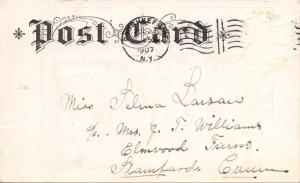 Post Card
1907
N.Y.
Miss Selma Larsen
c/o Mrs. J. T. Williams
Elmwood Farm.
Stamford, Conn